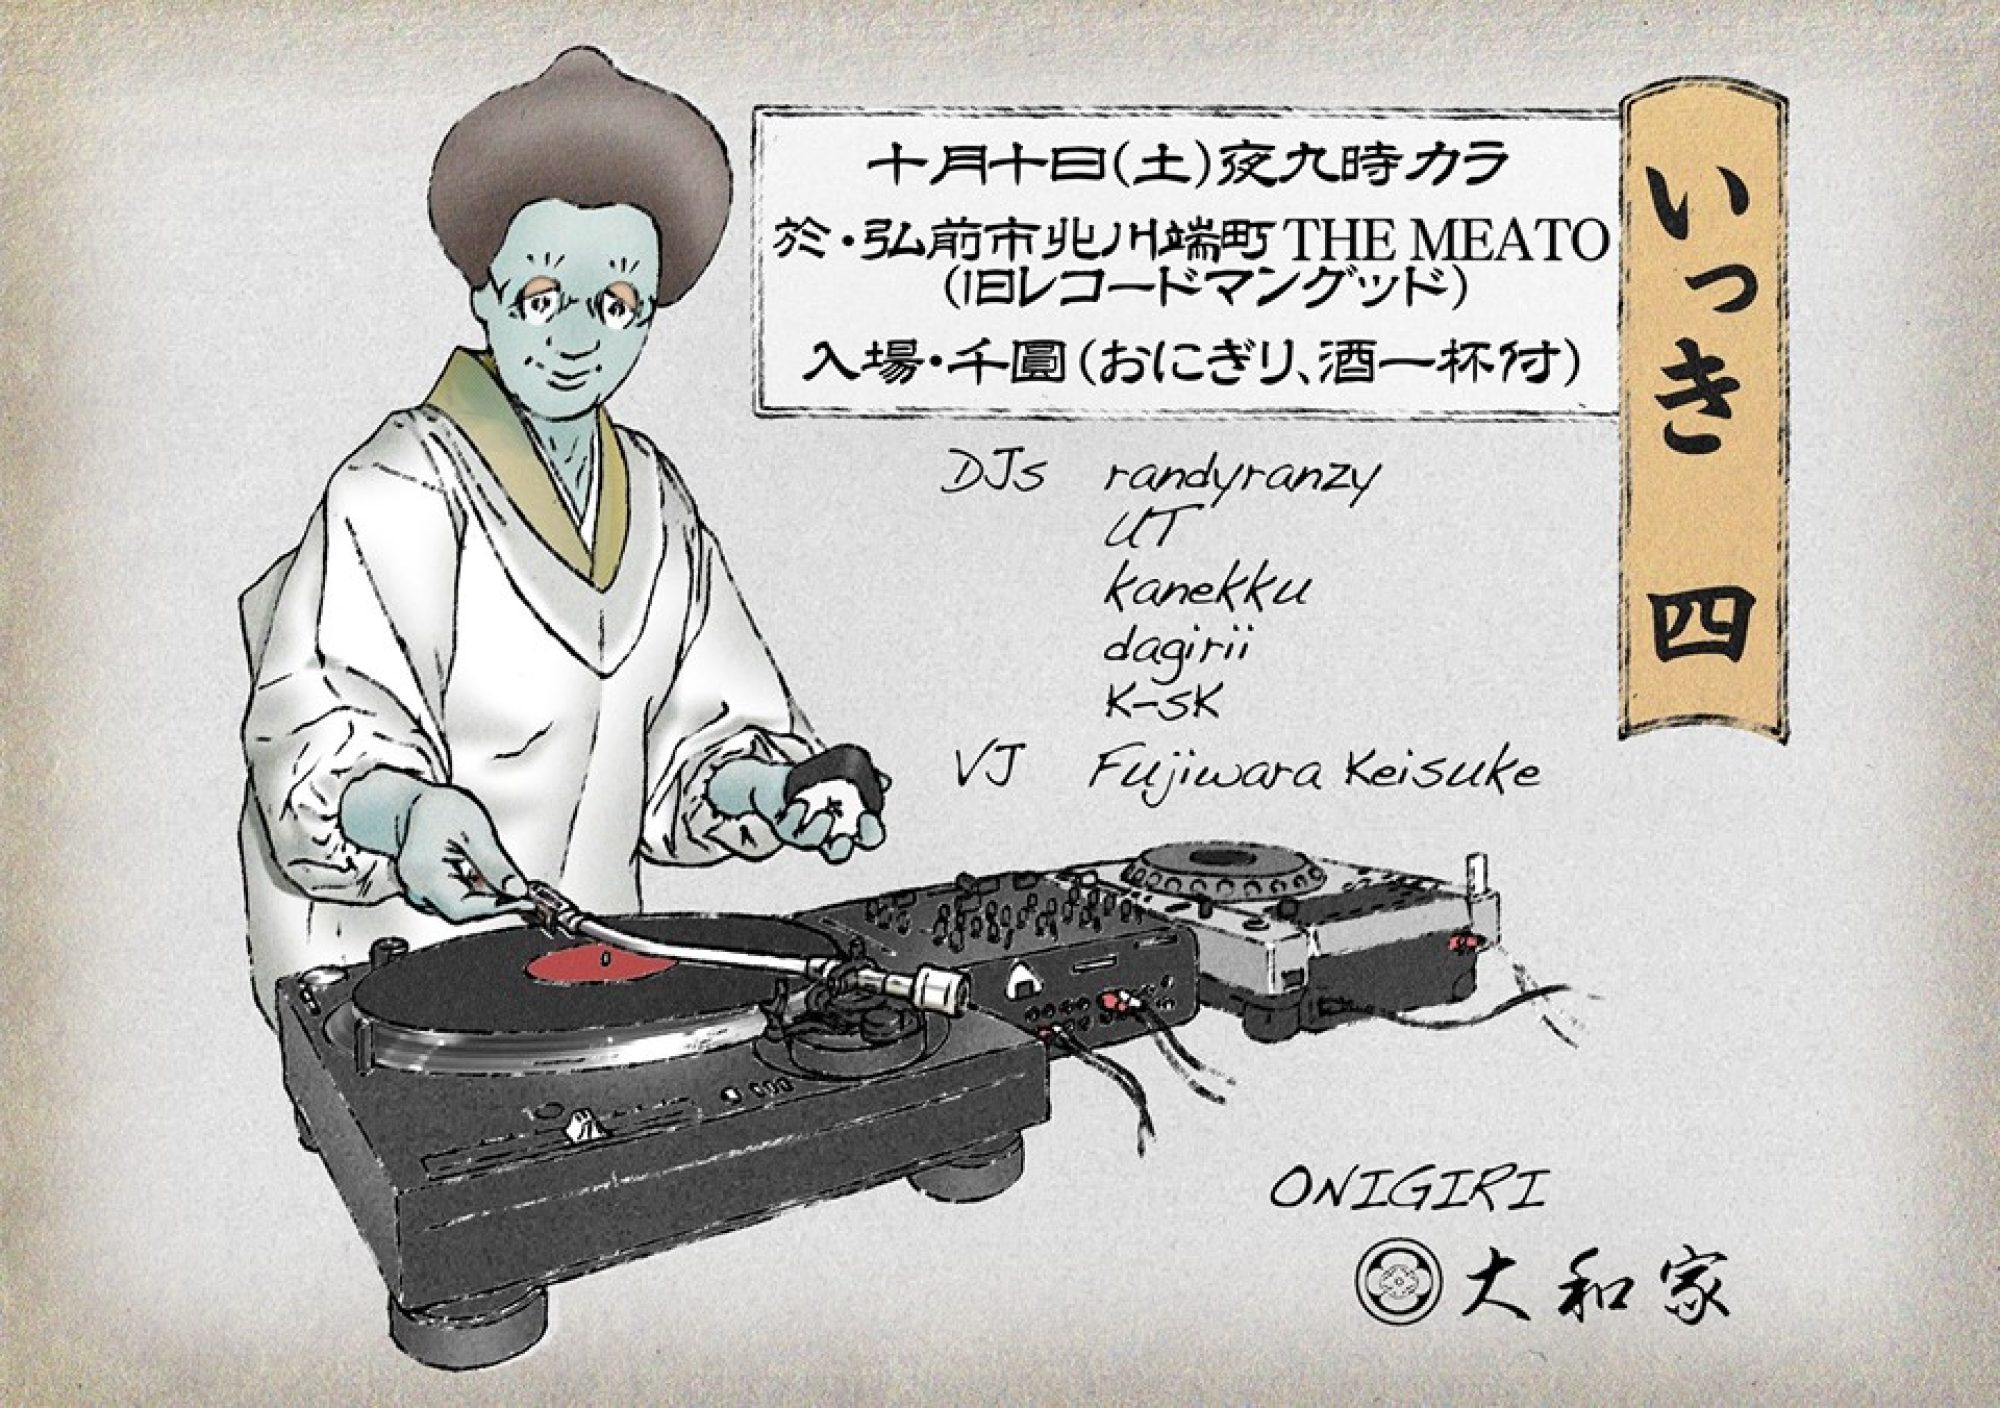 いっき 四
十月十日(土)夜九時カラ
於・弘前市北川端町 THE MEATO
(旧レコードマングッド)
入場・千圓(おにぎり、酒一杯付)
DJs randyranzy
UT
kanekku
dagirii
K-SK
VJ Fujiwara Keisuke
ONIGIRI
大和家